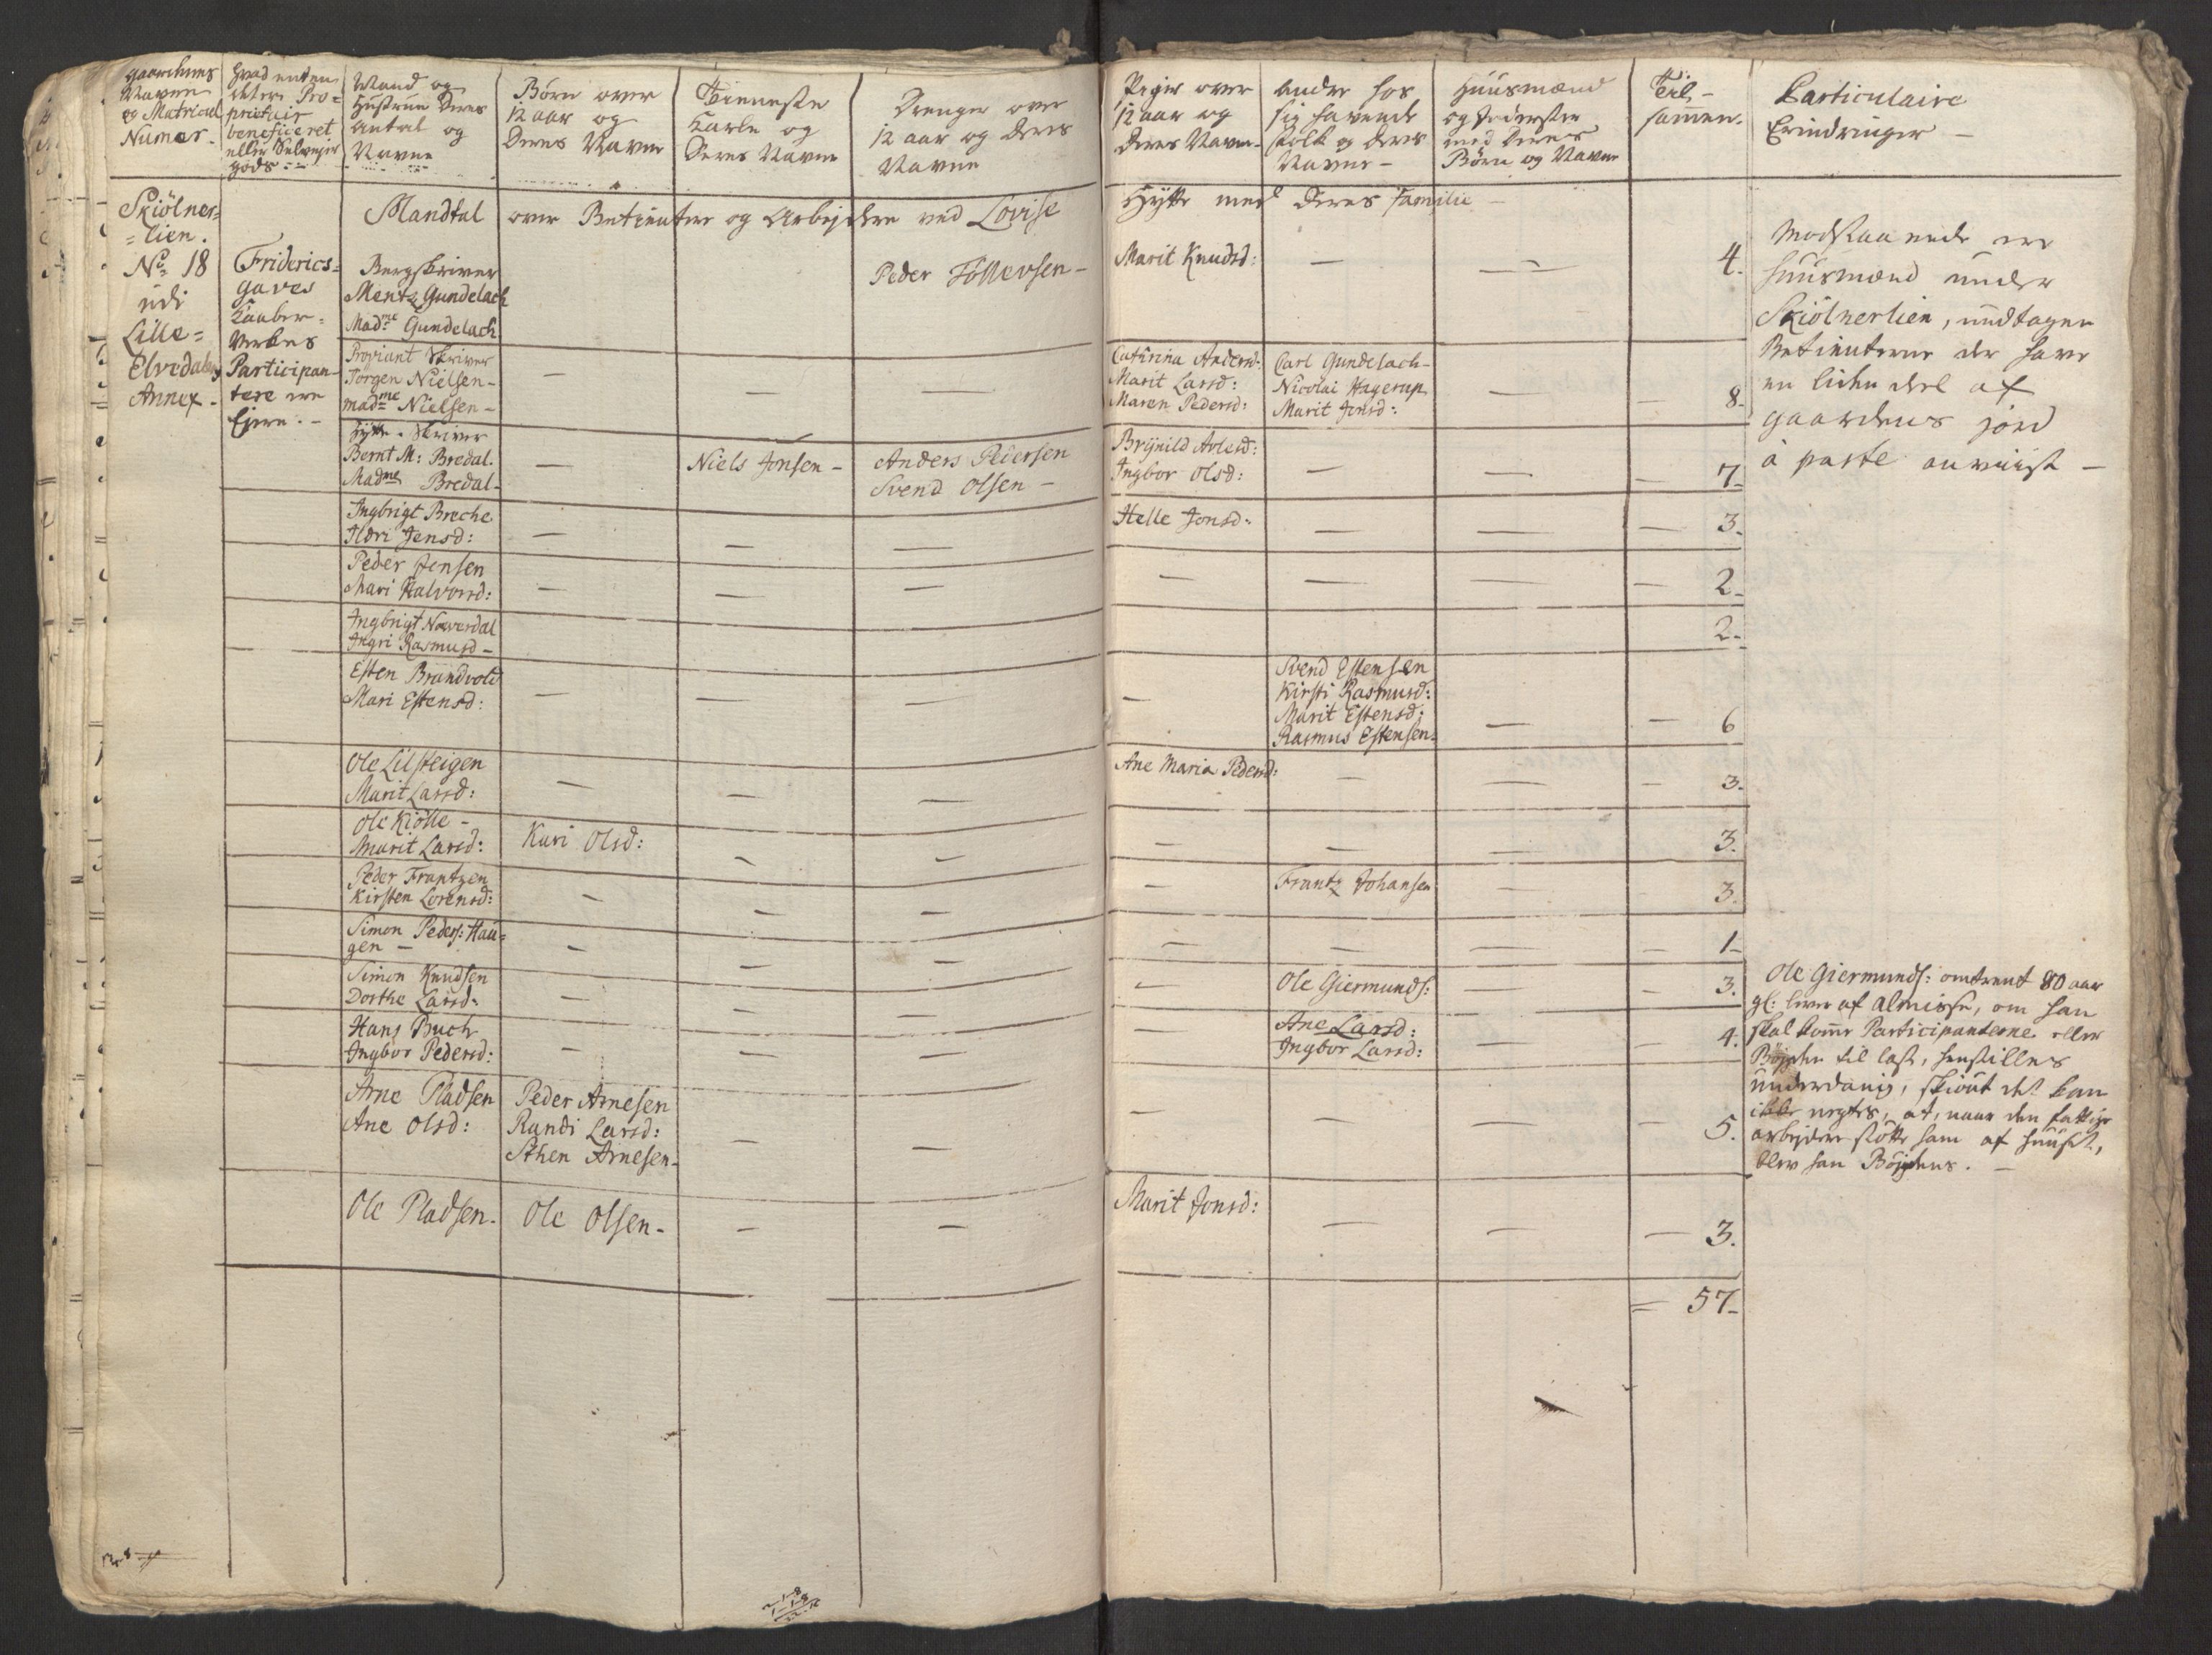 Gaardenes
Navne
og Matricul
Numer.
Hvad enten
det er Pro=
prietair
beneficeret
eller Selvejer
gods.
Mand og
Hustrue Deres
Antal og
Navne
Børn over
12 aar og
Deres Navne
Tienneste
Karle og
Deres Navne
Drenge over
12 aar og deres
Navne
Piger over
12 aar og
deres Navne
Andre hos
sig havende
folk og deres
Navne -
Huusmænd
og Inderster
med deres
Børn og Navne
Til-
sammen.
Particulaire
Erindringer -
Skiölner=
=lien.
No 18
udi
Lille=
Elvedalens
Annex.
Friderics=
gaves
Kaaber=
Verkes
Participan-
tere ere
Ejere.-
Mandtal over Betienter og Arbejdere ved Lovise Hytte med deres Familie -
Bergskriver
Mentz Gundelach
Madme Gundelach
Peder Töllevsen -
Marit Knudsd:
4.
Proviant Skriver
Jørgen Nielsen -
Madme Nielsen -
Cathrina Andersd:
Marit Larsd:
Maren Pedersd:
Carl Gundelach -
Nicolai Hagerup
Marit Jonsd:
8.
Hytte-Skriver
Bernt M: Bredal.
Madme Bredal.
Niels Jonsen -
Anders Pedersen
Svend Olsen -
Brynild Arlesd:
Ingbor Olsd:
7-
Ingbrigt Breche
Ildri Jensd:
Helle Jonsd:
3.
Peder Jensen
Mari Halvorsd:
2-
Ingbrigt Naverdal
Ingri Rasmusd -
2-
Esten Brandvold
Mari Estensd:
Svend Estensen
Kirsti Rasmusd:
Marit Estensd:
Rasmus Estensen.
6
Ole Lilsteigen
Marit Larsd:
Ane Maria Pedersd:
3.
Ole Kiölle -
Marit Larsd:
Kari Olsd:
3.
Peder Frantzen
Kirsten Lorensd:
Frantz Johansen
3.
Simon Peders: Hau=
gen -
1-
Simon Knudsen
Dorthe Larsd:
Ole Giermunds:
3.
Hans Buch
Ingbor Pedersd:
Ane Larsd:
Ingbor Larsd:
4.
Arne Pladsen
Ane Olsd:
Peder Arnesen
Randi Larsd:
Sthen Arnesen.
5.
Ole Pladsen.
Ole Olsen -
Marit Jonsd:
3.
= 57-
Modstaaende ere
huusmænd under
Skiölnerlien, undtagen
Betienterne der have
en liden deel af
gaardens jord
à parte anviist -
Ole Giermunds: omtrent 80 aar
gl: lever af Almisse, om han
skal komme Participanterne eller
Bøjden til last, henstilles
underdanig, skiönt det kan
ikke negtes, at, naar den fattige
arbejdere stötte ham af huuset,
blev han Bøjdens. -